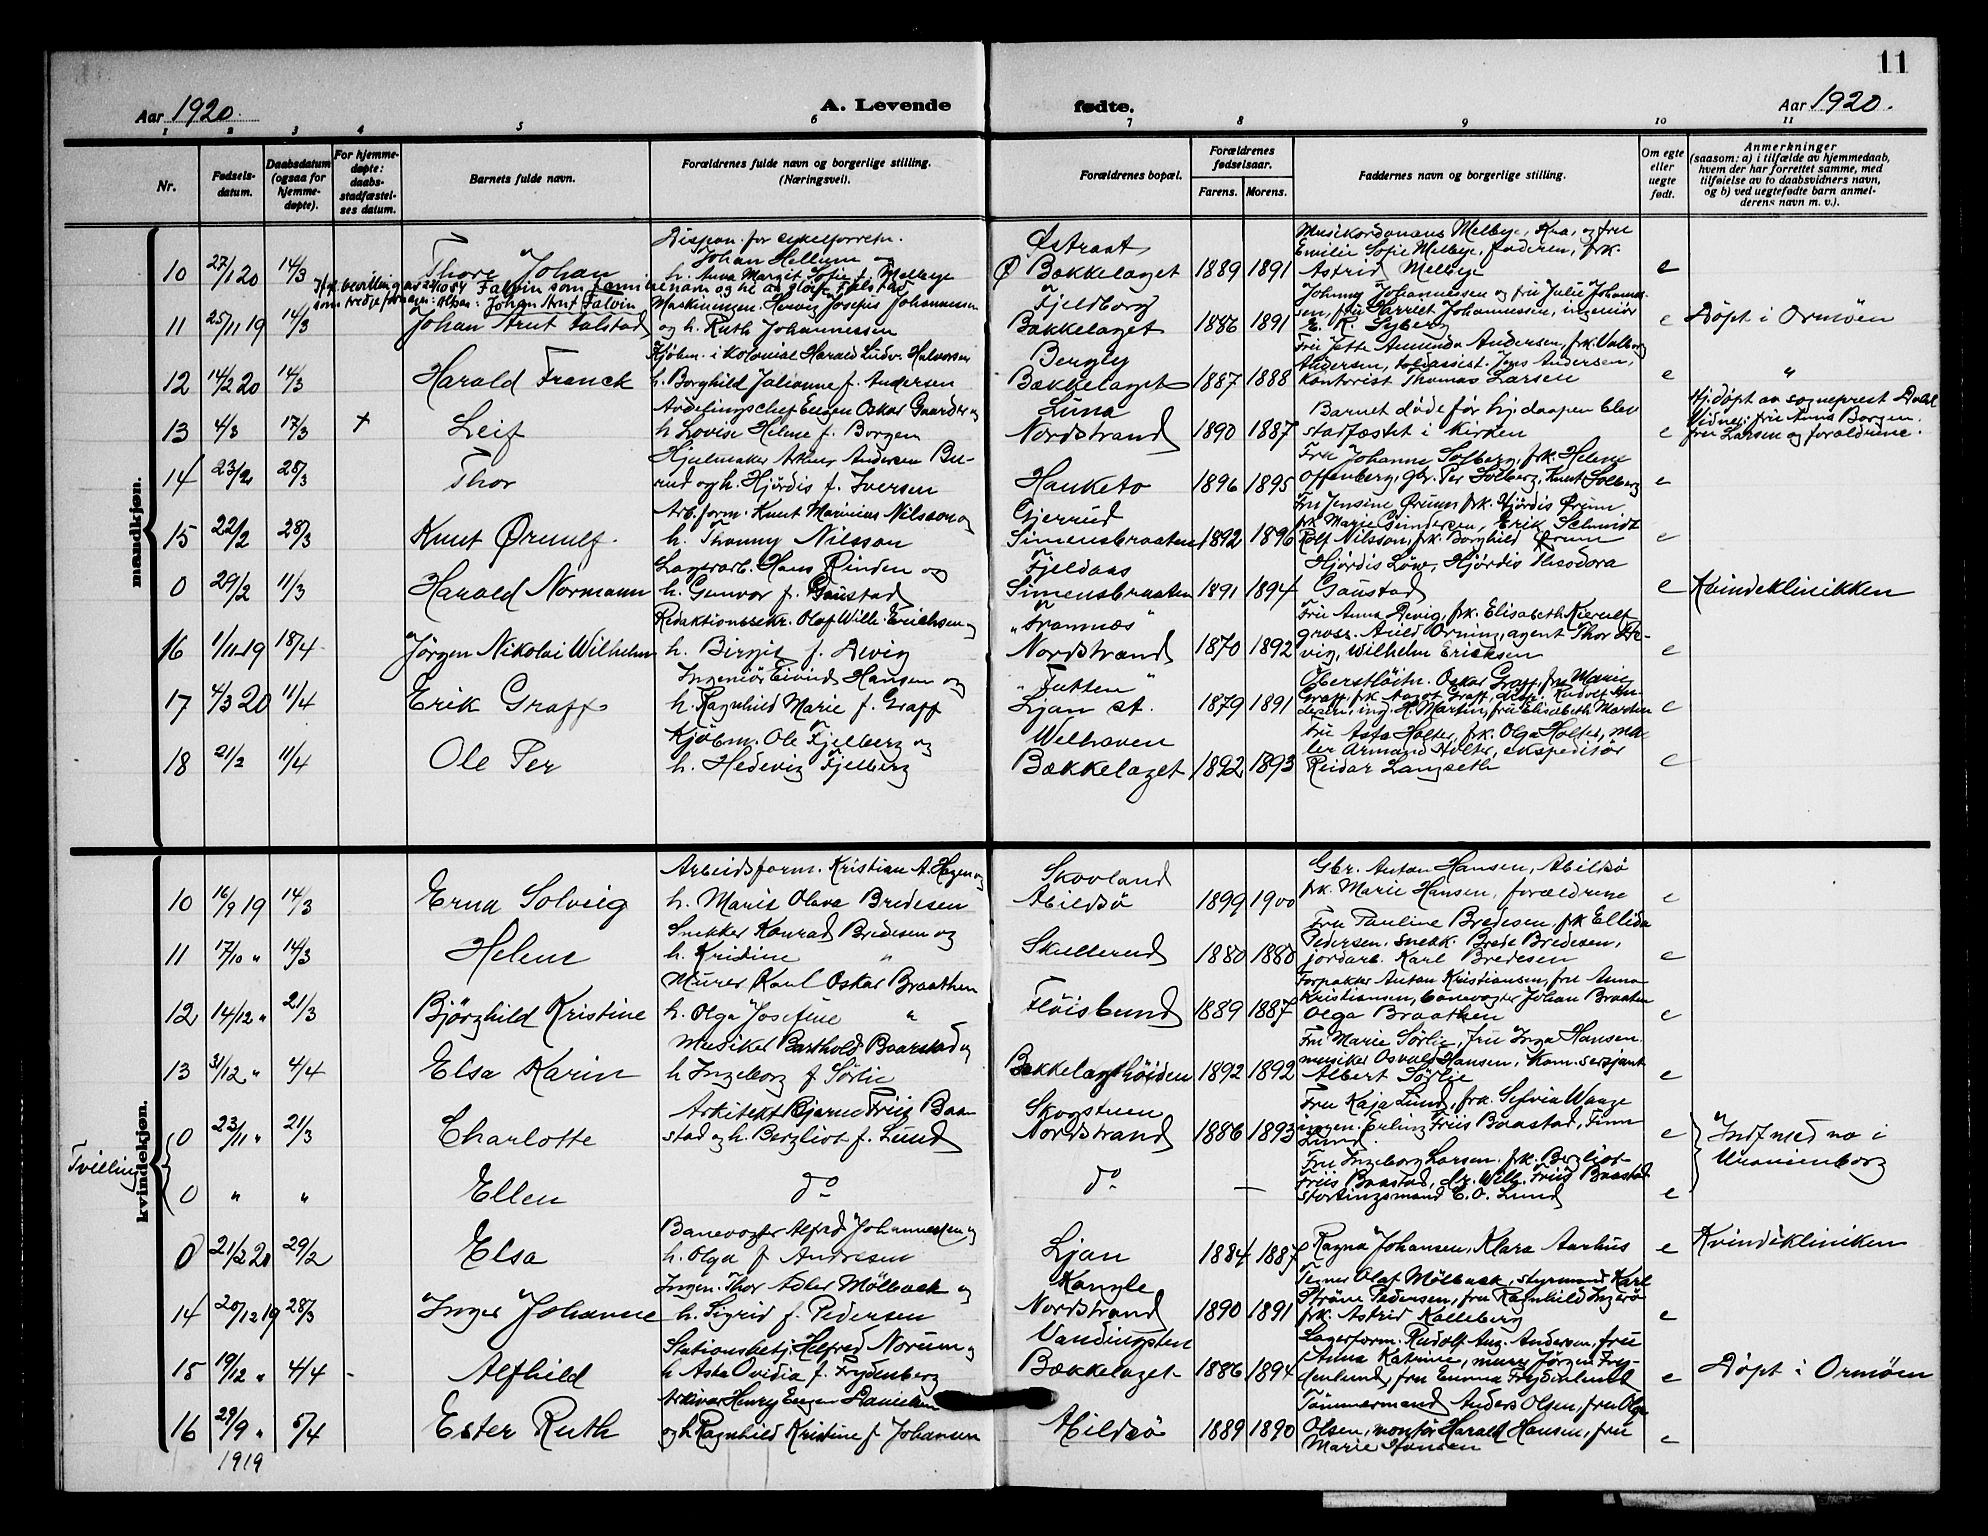 11
Aar 1920. A. Levende fødte. Aar 1920.
1 2 3 4 5 6 7 8 9 10 11
Nr.
Fødsels-
datum.
Daabsdatum
(ogsaa for
hjemme-
døpte).
For hjemme-
døpte:
daabs-
stadfæstel-
ses datum.
Barnets fulde navn.
Forældrenes fulde navn og borgerlige stilling.
(Næringsvei).
Forældrenes bopæl.
Forældrenes
fødselsaar.
Farens. Morens.
Faddernes navn og borgerlige stilling.
Om egte
eller
uegte
født.
Anmerkninger
(saasom: a) i tilfælde av hjemmedaab,
hvem der har forrettet samme, med
tilføielse av to daabsvidners navn,
og b) ved uegtefødte barn anmel-
derens navn m. v.).
mandkjøn.
10 27/1 20 14/3 Thore Johan
Dispon. for cykelforretn.
Johan Hellum og
h. Anna Margit Sofie f. Melbye
Østraat
Ø Bækkelaget 1889 1891
Melbye, Kra, og fru
Emilie Sofie Melbye, faderen, frk.
Astrid Melbye e
Falvin som familienavn og
Johan Arnt Falvin
11 25/11 19 14/3 Johan Arnt Falstad
Johannessen
og h. Ruth Johannessen
Fjeldborg
Bækkelaget 1886 1891
Johnny Johannessen og fru Julie Johannes-
sen, fru Harriet Johannessen, ingeniør
E. R. Syberg e Døpt i Ormøen
12 14/2 20 14/3 Harald Franck
Kjøbm. i kolonial Harald Ludv. Halvorsen
h. Borghild Julianne f. Andersen
Bergly
Bækkelaget 1887 1888
Fru Jette Amunda Andersen, frk. Valborg
Andersen, toldassist. Jens Andersen,
Kontorist Thomas Larsen e "
13 4/3 17/3 + Leif
Avdelingschef Eugen Oskar Gaarder og
h. Lovise Helene f. Borgen
Luna
Nordstrand 1890 1887
Barnet døde før hj.daapen blev
stadfæstet i kirken e
Hj.døpt av sogneprest Dahl
Vidner: fru Anna Borgen
fru Larsen og forældrene.
14 23/2 28/3 Thor
Hjulmaker Arthur Andersen Bu-
rud og h. Hjørdis f. Iversen
Hauketo 1896 1895
Fru Johanne Solberg, frk. Helene
Offenberg, Gbr. Per Solberg, Knut Solberg e
15 22/2 28/3 Knut Ørnulf
Arb.form. Knut Marinius Nilsson og
h. Thonny Nilsson
Gjerrud
Simensbraaten 1892 1896
Fru Jensine Ørum, frk. Hjørdis Ørum
frk Marie Gundersen, Erik Schmidt
Rolf Nilsson, frk. Borghild Ørum e
0 29/2 11/3 Harald Normann
Lagerarb. Hans Rinden og
h. Gunvor f. Gaustad
Fjeldaas
Simensbraaten 1891 1894
Hjørdis Löw, Hjørdis Theodora
Gaustad e Kvindeklinikken
16 1/11 19 18/4 Jørgen Nikolai Wilhelm
Redaktionssekr. Olaf Wilh. Erichsen og
h. Birgit f. Devig
"Framnæs"
Nordstrand 1870 1892
Fru Anna Devig, frk. Elisabeth Kierulf,
gross. Orning, agent Thor De-
vig, Wilhelm Ericksen e
17 4/3 20 11/4 Erik Graff
Ingeniør Eivind Hansen og
h. Ragnhild Marie f. Graff
"Tutten"
Ljan st. 1879 1891
Oberstløitn. Oskar Graff, fru Marie
Graff, frk Aagot Graff, disp. Rudolf An-
dersen, ing. H. Marten, fru Elisabeth Marten e
18 21/2 11/4 Ole Per
Kjøbm. Ole Fjelberg og
h. Hedevig Fjelberg
Welhaven
Bækkelaget 1892 1893
Fru Asta Holter, frk. Olga Holter, ma-
ler Armand Holter, ekspeditør
Reidar Langseth e
kvindekjøn.
10 16/9 19 14/3 Erna Solveig
Arbeidsform. Kristian A. Hagen og
h. Marie Olava Bredesen
Skovland
Abildsø 1899 1900
Gbr. Anton Hansen, Abildsø
frk. Marie Hansen, forældrene e
11 17/10 " 14/3 Helene
Snekker Konrad Bredesen og
h. Kristine "
Skullerud 1880 1880
Fru Pauline Bredesen, frk Ellida
Pedersen, snekk. Brede Bredesen,
jordarb. Karl Bredesen e
12 14/12 " 21/3 Bjørghild Kristine
Murer Karl Oskar Braathen
h. Olga Josefine "
Fløisbund 1889 1887
Forpakter Anton Kristiansen, fru Anna
Kristiansen, banevogter Johan Braaten
Olga Braathen e
13 31/12 " 4/4 Elsa Karin
Musiker Barthold Baarstad og
h Ingeborg f Sørlie
Bækkelagshøiden 1892 1892
Fru Marie Sørlie, fru Inga Hansen.
musiker Osvald Hansen, Kom.sersjant
Albert Sørlie e
Tvilling
0 23/11 " 21/3 Charlotte
Arkitekt Bjarne Friis Baa-
stad og h. Bergliot f. Lund
Skogstuen
Nordstrand 1886 1893
Fru Kaja Lund, frk. Sylvia Waage
ingen. Erling Friis Baastad, Finn
Lund. e Indf med no i
Uranienborg
0 " " Ellen do do —
Fru Ingeborg Larsen, frk. Bergliot
Friis Baastad, dr. Wilh. Friis Baastad
stortingsmand E. O. Lund e
0 21/2 20 29/2 Elsa
Banevogter Alfred Johannessen og
h. Olga f Andresen
Ljan 1884 1887
Ragna Johansen, Klara Aarhus e Kvindekliniken
14 20/12 19 28/3 Inger Johanne
Ingen. Thor Adler Mølback og
h. Sigrid f. Pedersen
Kangle
Nordstrand 1890 1891
Tegner Olaf Mølback, styrmand Karl
Strøne Pedersen, fru Ragnhild Ingerø
frk. Astrid Kalleberg e
15 19/12 " 4/4 - Alfhild
Stationsbetj. Helfred Norum og
h Asta Ovidia f. Frydenberg
Vandingsten
Bækkelaget 1886 1894
Lagerform. Rudolf Aug. Andersen, fru
Anna Katrine, murer Jørgen Fry-
denlund, fru Emma Frydenlund e Døpt i Ormøen
16 29/9 " 5/4 Ester Ruth
Arkivar Henry Eugen Danielsen
og h Ragnhild Kristine f Johansen
Abildsø 1889 1890
Tømmermand Anders Olsen, fru Olga
Olsen, montør Harald Hansen, fru
Marie Hansen e
1919